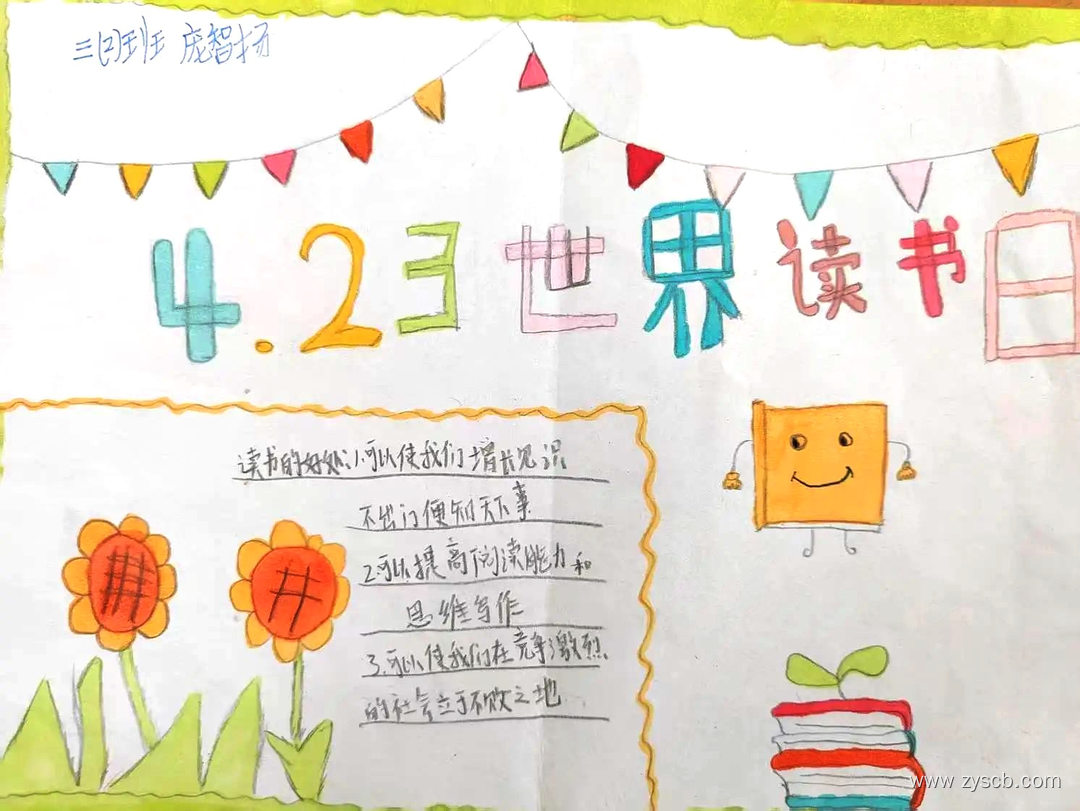 三(2)班 庞智扬
4.23世界读书日
读书的好处:1.可以使我们增长见识
不出门便知天下事
2.可以提高阅读能力和
思维写作
3.可以使我们在竞争激烈
的社会立于不败之地
www.zyscb.com